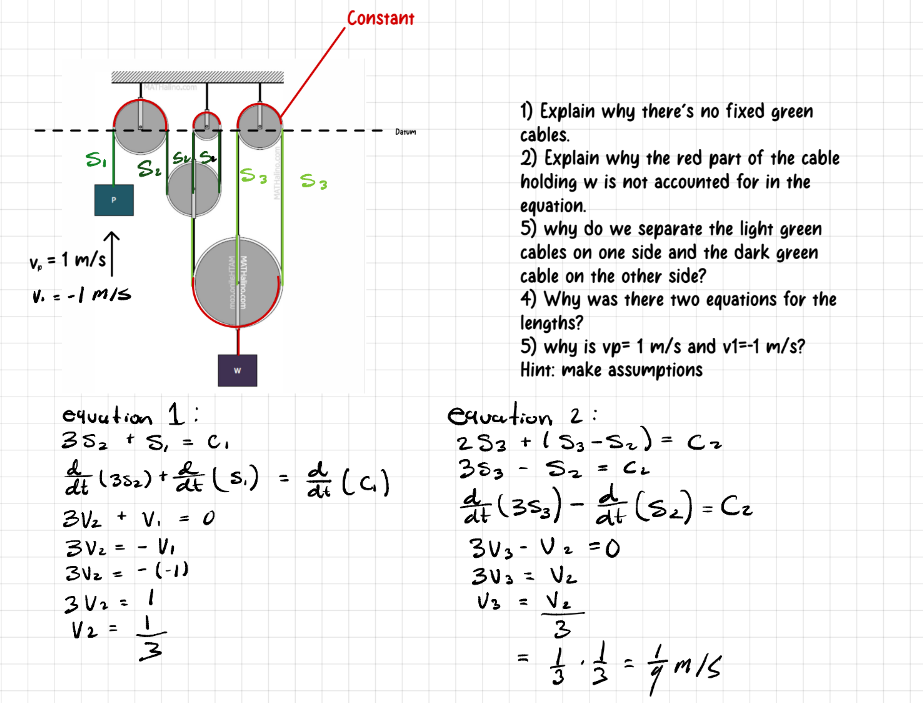 Constant
MATHalino.com
Datum
S₁
S₂
S₂
S₂
S₃
S₃
MATHalino.com
P
vₚ = 1 m/s
v₁ = -1 m/s
MATHalino.com
MATHalino.com
W
1) Explain why there's no fixed green
cables.
2) Explain why the red part of the cable
holding w is not accounted for in the
equation.
5) why do we separate the light green
cables on one side and the dark green
cable on the other side?
4) Why was there two equations for the
lengths?
5) why is vp= 1 m/s and v1=-1 m/s?
Hint: make assumptions
equation 1:
3S₂ + S₁ = C₁
d/dt (3S₂) + d/dt (S₁) = d/dt (C₁)
3V₂ + V₁ = 0
3V₂ = - V₁
3V₂ = - (-1)
3V₂ = 1
V₂ = 1/3
equation 2:
2S₃ + (S₃ - S₂) = C₂
3S₃ - S₂ = C₂
d/dt (3S₃) - d/dt (S₂) = C₂
3V₃ - V₂ = 0
3V₃ = V₂
V₃ = V₂/3
= 1/3 · 1/3 = 1/9 m/s